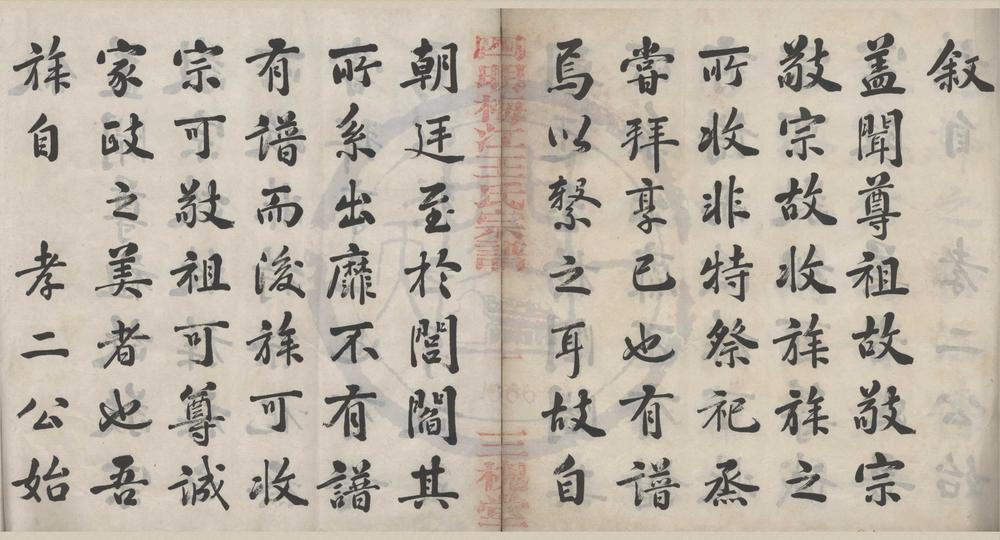 敘
蓋聞尊祖故敬宗
敬宗故收族族之
所收非特祭祀烝
嘗拜享已也有譜
焉以繫之耳故自
四明桃江王氏宗譜
一
三槐堂
朝廷至於閭閻其
所系出靡不有譜
有譜而後族可收
宗可敬祖可尊誠
家政之美者也吾
族自 孝二公始